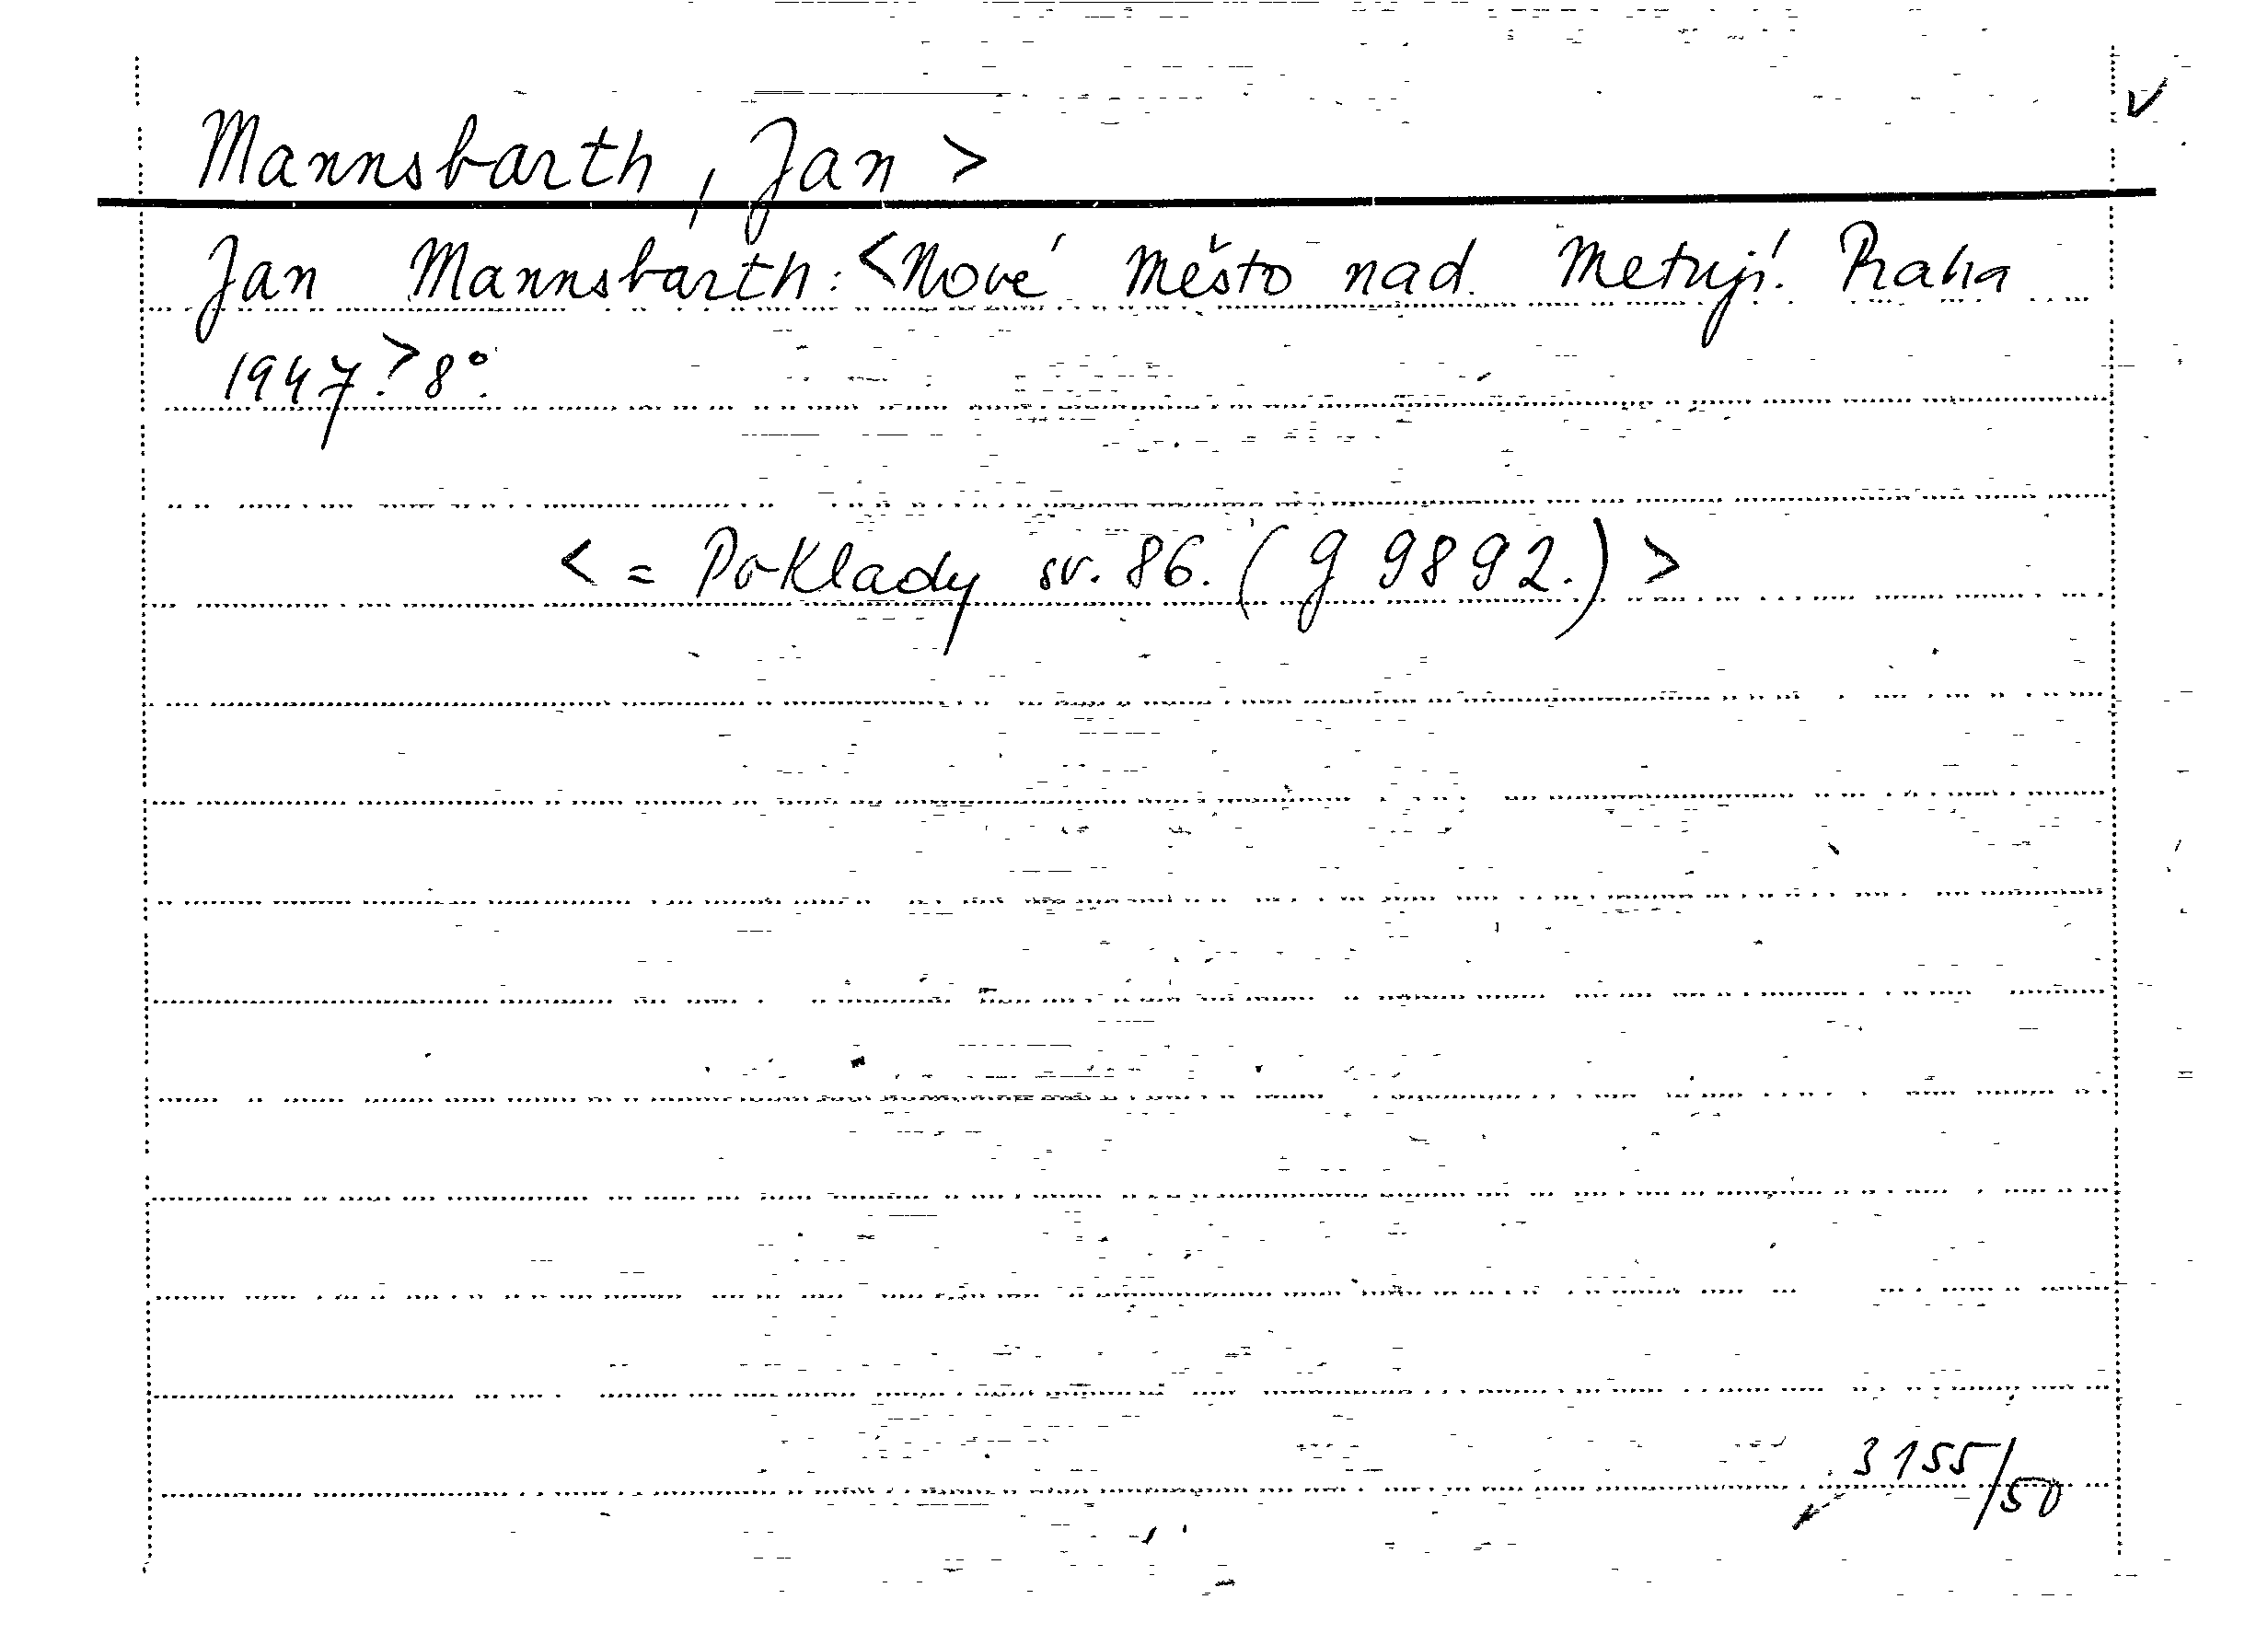 Mannsbarth, Jan >
Jan Mannsbarth: <Nové Město nad Metují. Praha
1947.> 8°.
< = Poklady sv. 86. (g 9892.) >
3155/50